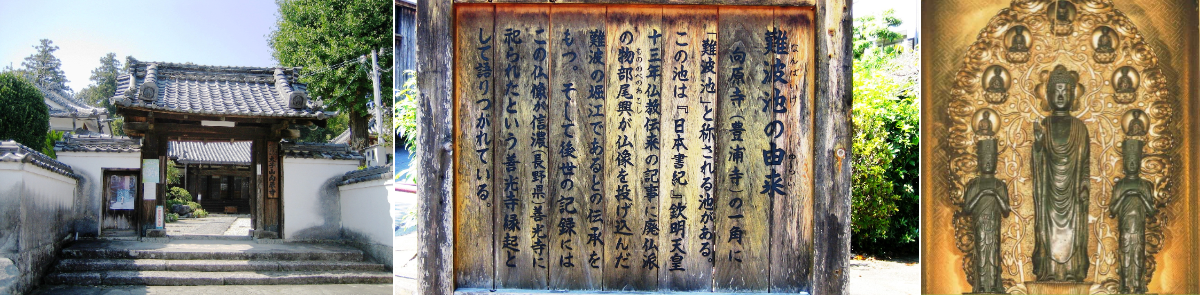 難波池の由来
なんばいけ
ゆらい
向原寺(豊浦寺)の一角に
「難波池」と称される池がある。
この池は『日本書紀』欽明天皇
十三年仏教伝来の記事に廃仏派
の物部尾興が仏像を投げ込んだ
もののべのおこし
難波の堀江であるとの伝承を
もつ。そして後世の記録には
この仏像が信濃(長野県)善光寺に
祀られたという善光寺縁起と
して語りつがれている。